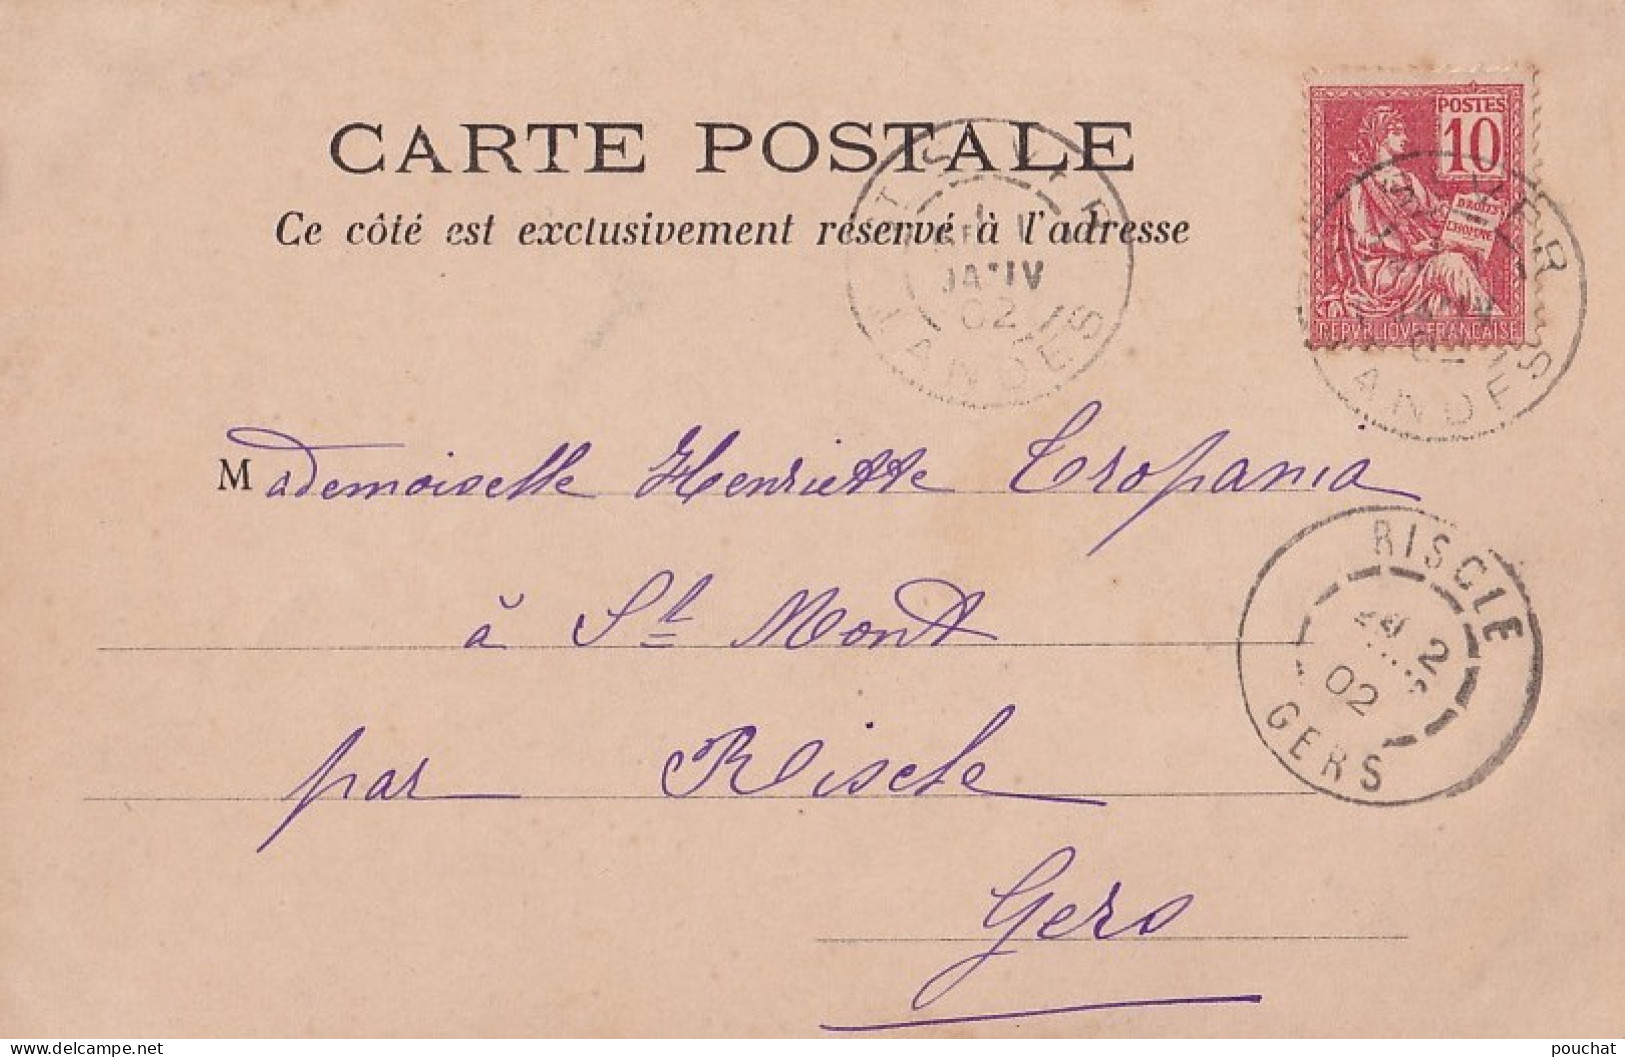 CARTE POSTALE
Ce côté est exclusivement réservé à l'adresse
POSTES
10
DROITS
DE
L'HOMME
REPVBLIQVE FRANCAISE
JANV
02
LANDES
LANDES
Mademoiselle Henriette Tropania
à St Mont
par Riscle
Gers
RISCLE
2
02
GERS
www.delcampe.net
pouchat